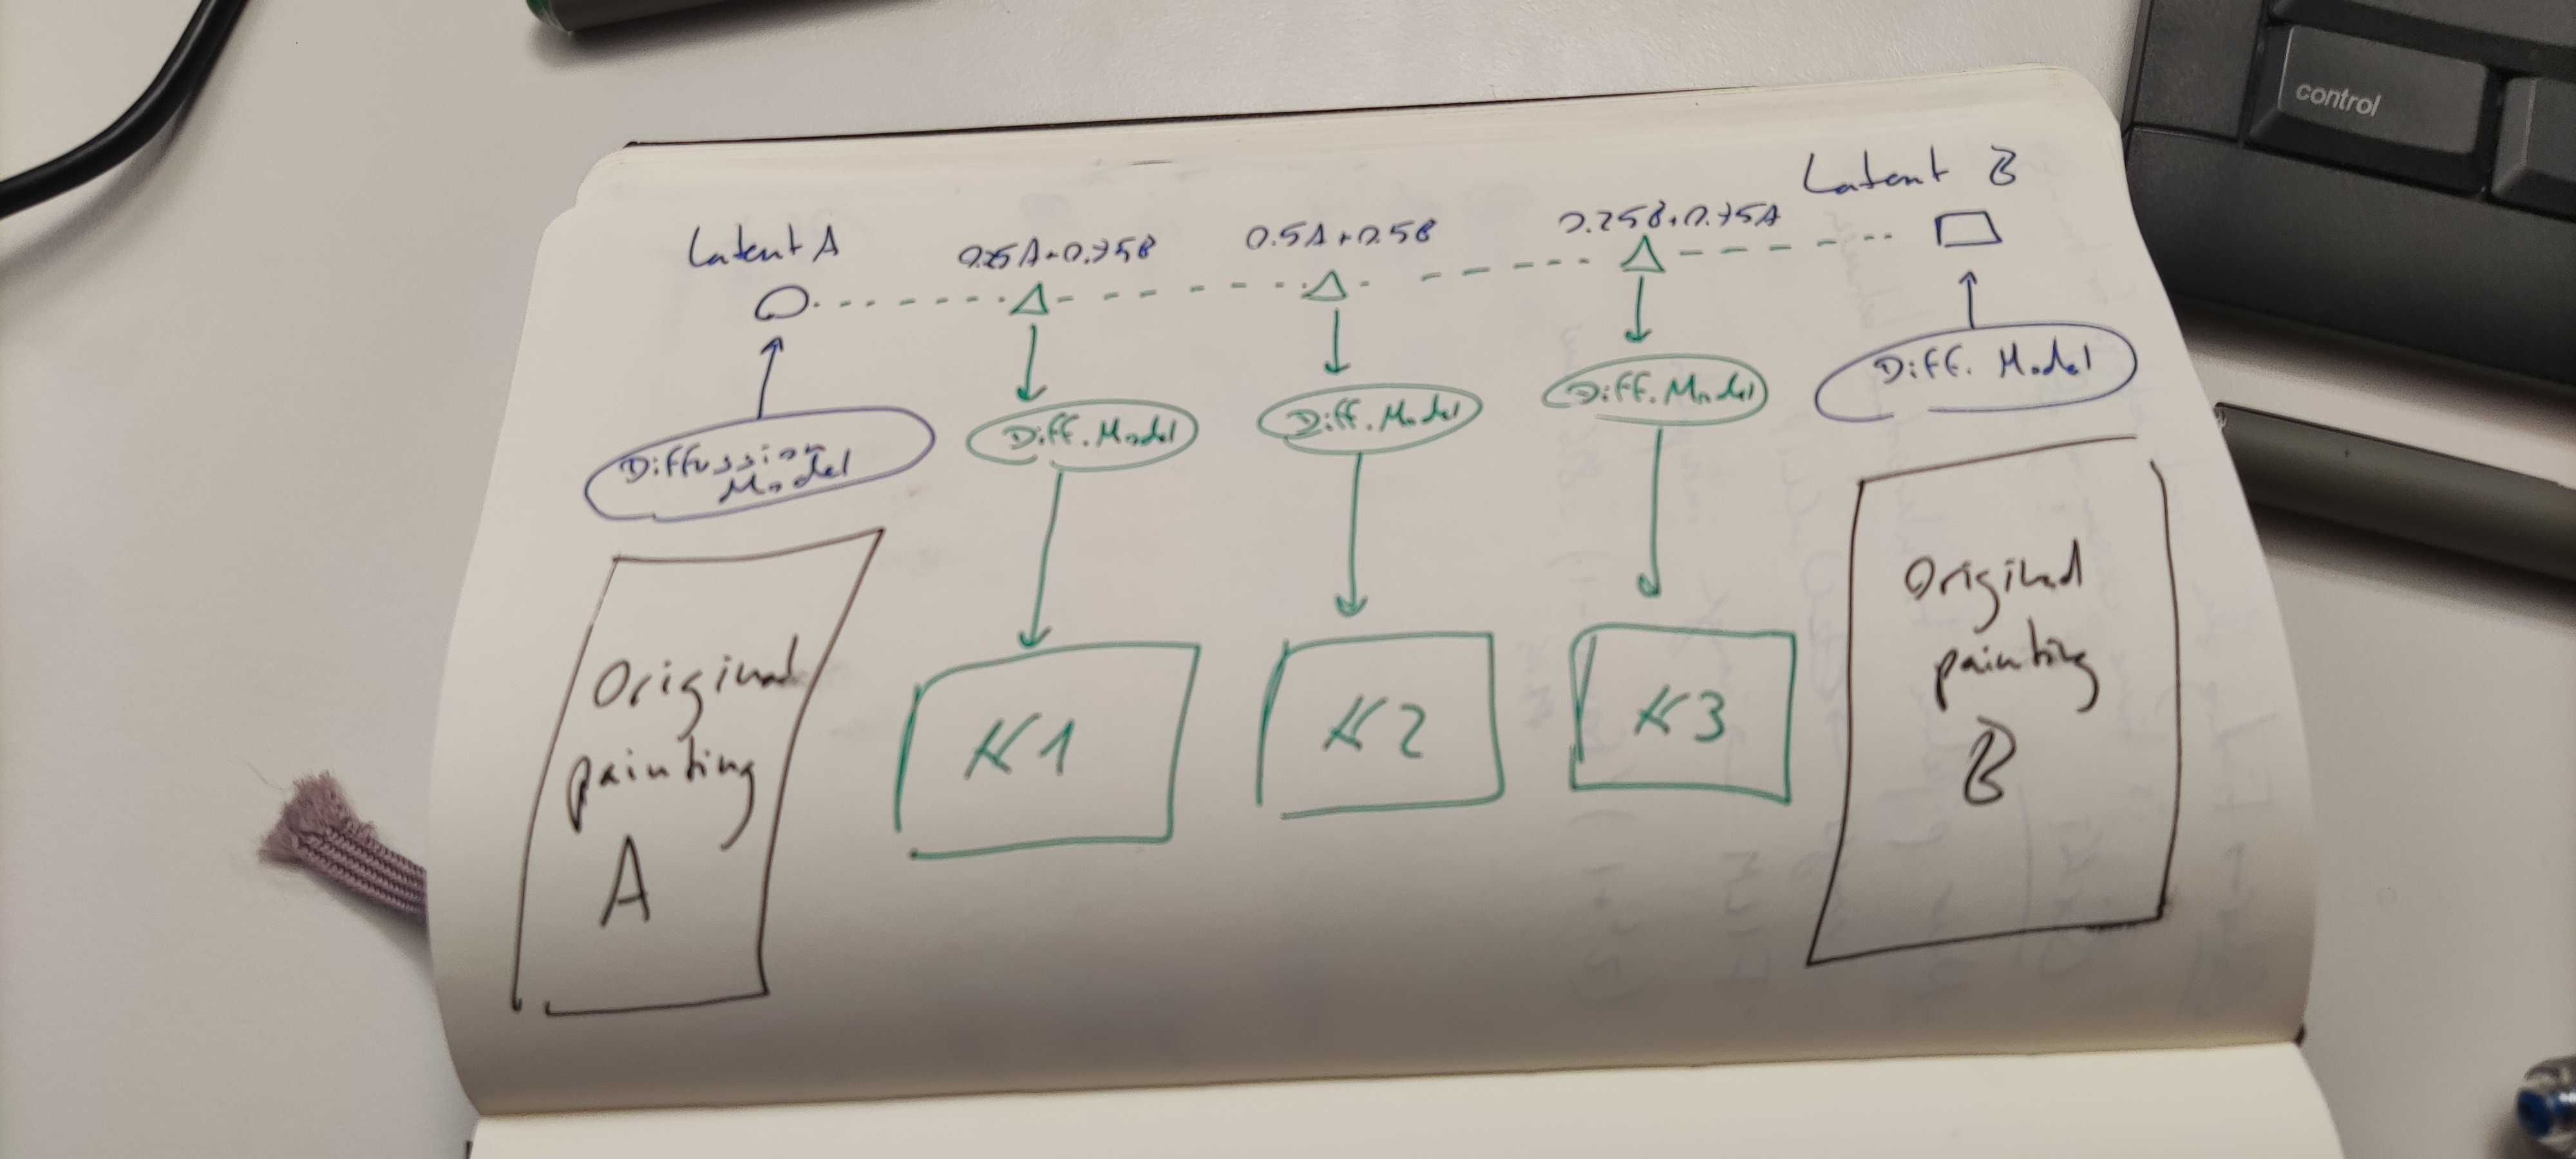 control
Latent B
Latent A
0.25A+0.75B
0.5A+0.5B
0.25B+0.75A
Diffussion
Model
Diff. Model
Diff. Model
Diff. Model
Diff. Model
Original
painting
A
K1
K2
K3
Original
painting
B